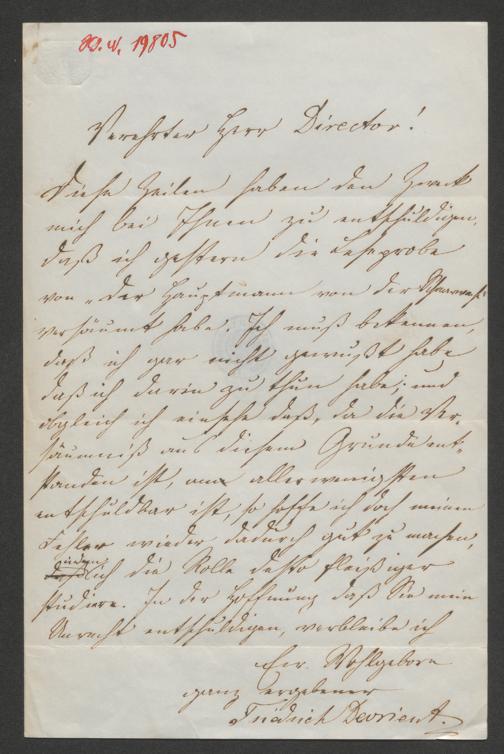 A. N. 19805
Verehrter Herr Director!
Diese Zeilen haben den Zweck
mich bei Ihnen zu entschuldigen,
daß ich gestern die Leseprobe
von „Der Hauptmann von der Scharwache“
versäumt habe. Ich muß bekennen,
daß ich gar nicht gewußt habe
daß ich darin zu thun habe; und
obgleich ich einsehe daß, da die Ver-
säumniß aus diesem Grunde ent-
standen ist, am allerwenigsten
entschuldbar ist, so hoffe ich doch meinen
Fehler wieder dadurch gut zu machen,
indem
ich die Rolle desto fleißiger
studiere. In der Hoffnung daß Sie mein
Unrecht entschuldigen, verbleibe ich
Euer Wohlgeboren
ganz ergebener
Friedrich Devrient.